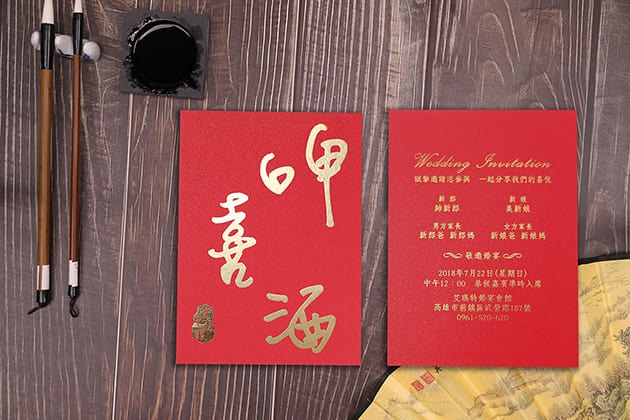 呷
喜
酒
Wedding Invitation
誠摯邀請您參與 一起分享我們的喜悅
新 郎 新 娘
帥新郎 美新娘
男方家長 女方家長
新郎爸 新郎媽 新娘爸 新娘媽
敬邀婚宴
2018年7月22日(星期日)
中午12：00 恭候嘉賓準時入席
艾瑪特婚宴會館
高雄市前鎮區武營路187號
0961-520-620